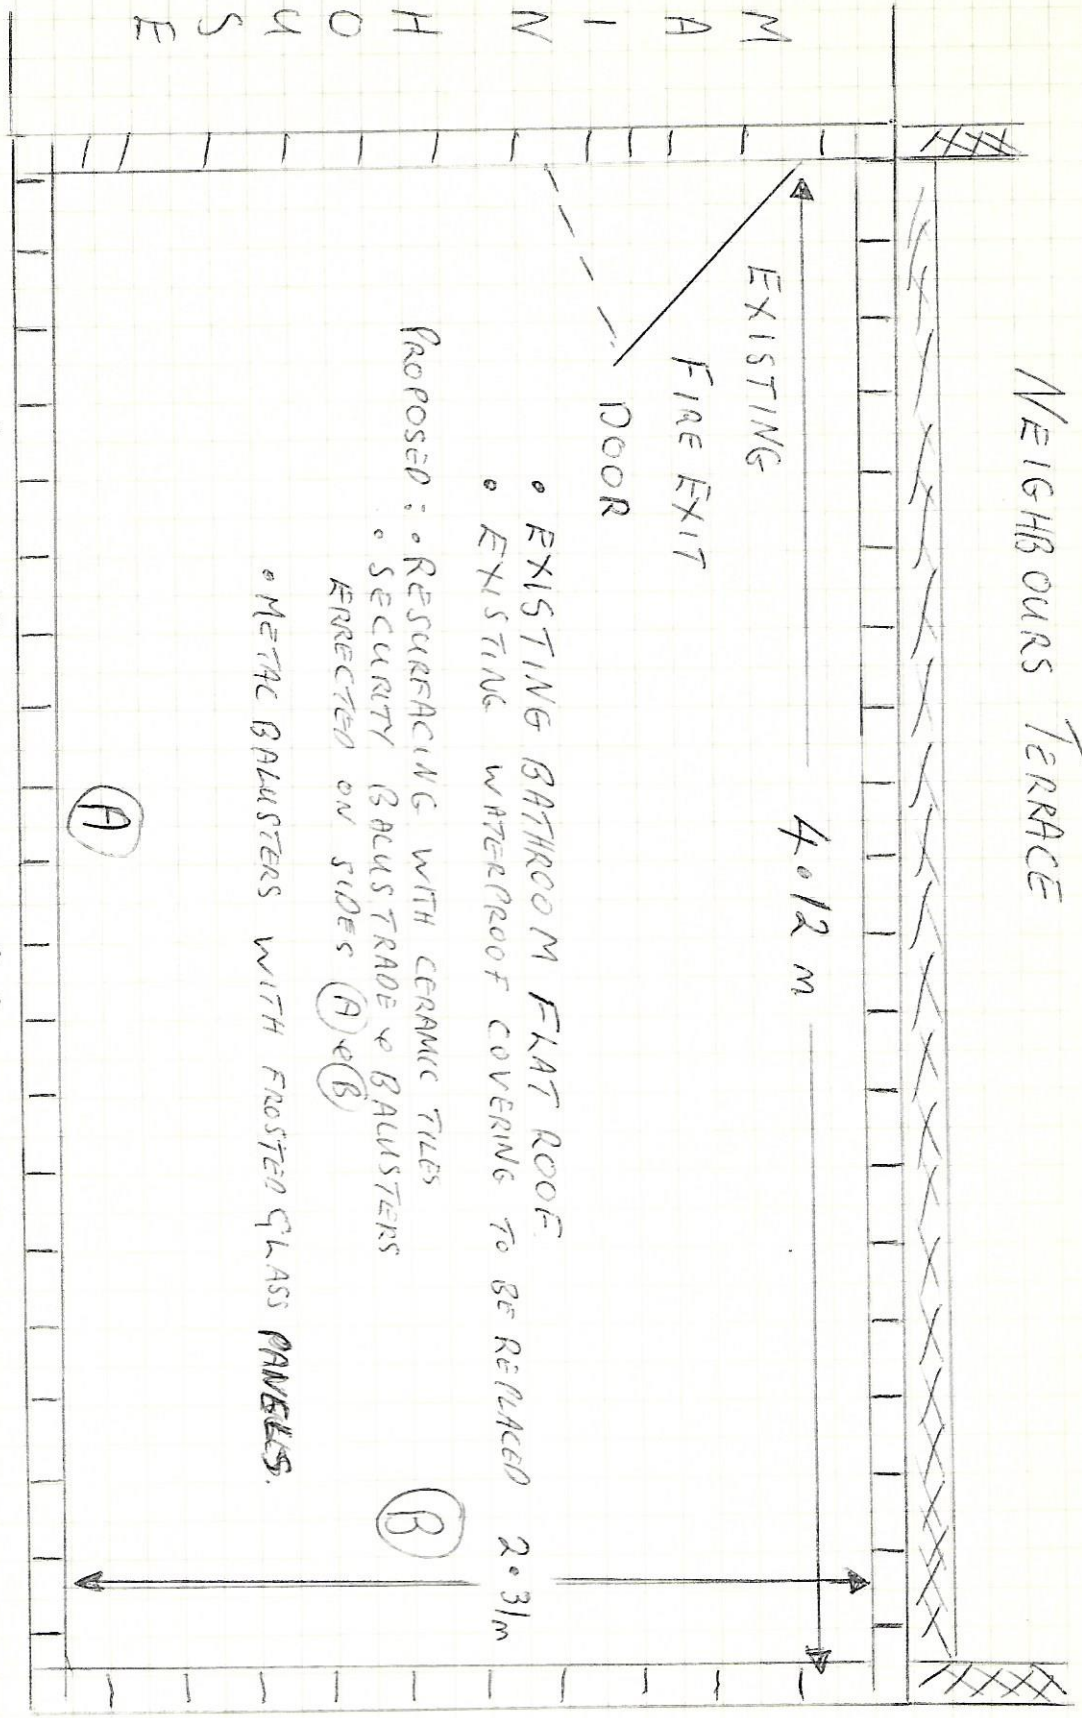 NEIGHBOURS TERRACE
MAIN HOUSE
4.12 m
EXISTING
FIRE EXIT
DOOR
• EXISTING BATHROOM FLAT ROOF.
• EXISTING WATERPROOF COVERING TO BE REPLACED
2.31m
PROPOSED: • RESURFACING WITH CERAMIC TILES
• SECURITY BALUSTRADE & BALUSTERS
ERRECTED ON SIDES A & B
• METAL BALUSTERS WITH FROSTED GLASS PANELS.
B
A